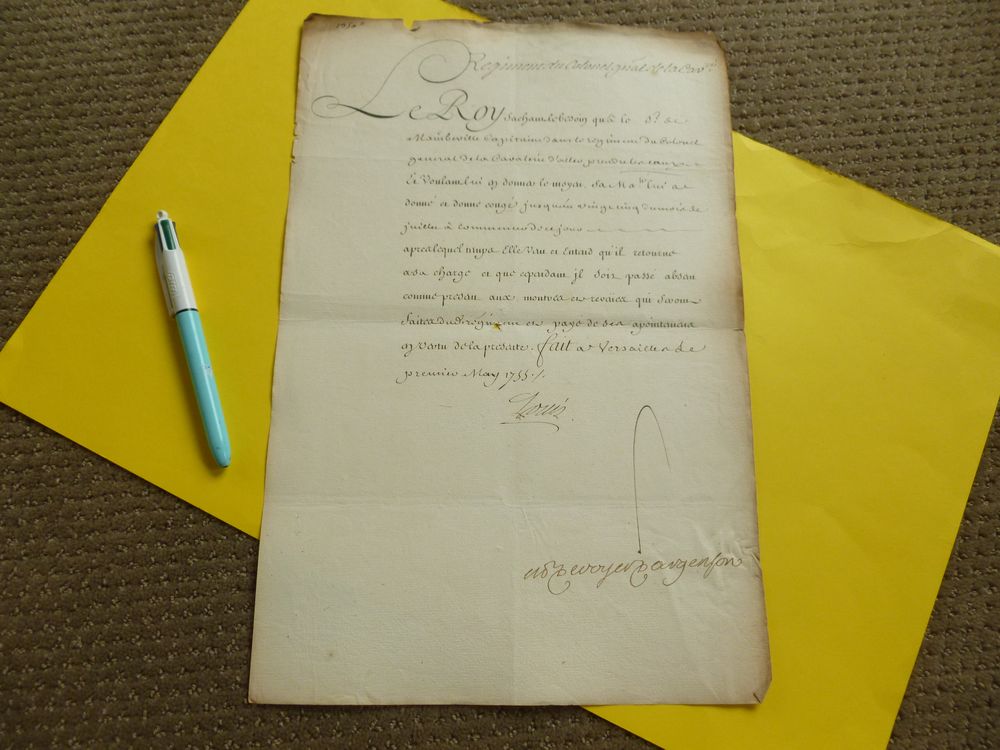 Regiment du Colonel gnal de la Cav.rie
Le Roy sachant le besoin qu'a le Sr. de
Maubeville Capitaine dans le regiment du Colonel
general de la Cavalerie d'aller prendre les eaux
Et Voulant lui en donner le moyen. Sa Ma.té lui a
donné et donne congé jusqu'au vingt cinq du mois de
juillet à commencer de ce jour
apres lequel temps Elle Veut et Entend qu'il retourne
a sa charge et que cependant jl soit passé absent
comme present aux montres et revües qui seront
faites du d. régiment et payé de ses apointemens
en Vertu de la presente. fait a Versailles le
premier May 1755 ./.
Louis
M. P. de voyer d'argenson